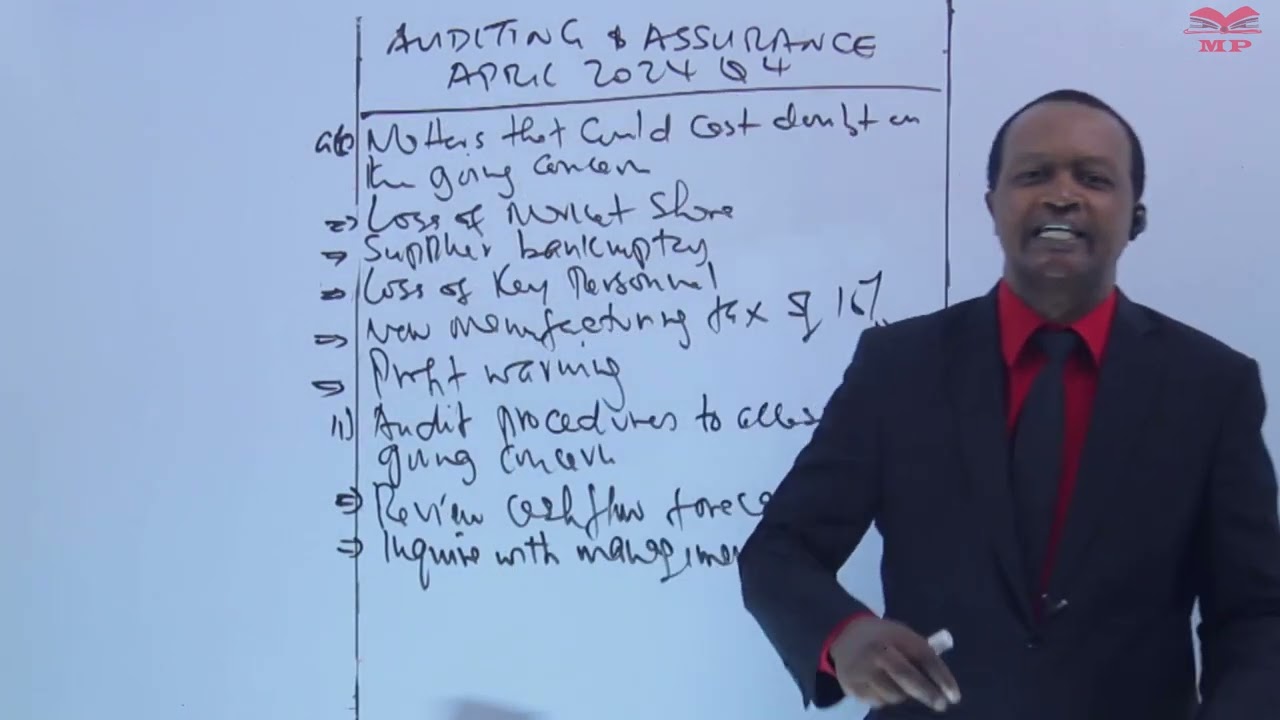 MP
AUDITING & ASSURANCE
APRIL 2024 Q4
a(i) Matters that could cast doubt on
the going concern
⇒ Loss of Market Share
⇒ Supplier bankruptcy
⇒ Loss of Key Personnel
⇒ New manufacturing tax of 16%
⇒ Profit warning
ii) Audit procedures to
going concern
⇒ Review cashflow
⇒ Inquire with